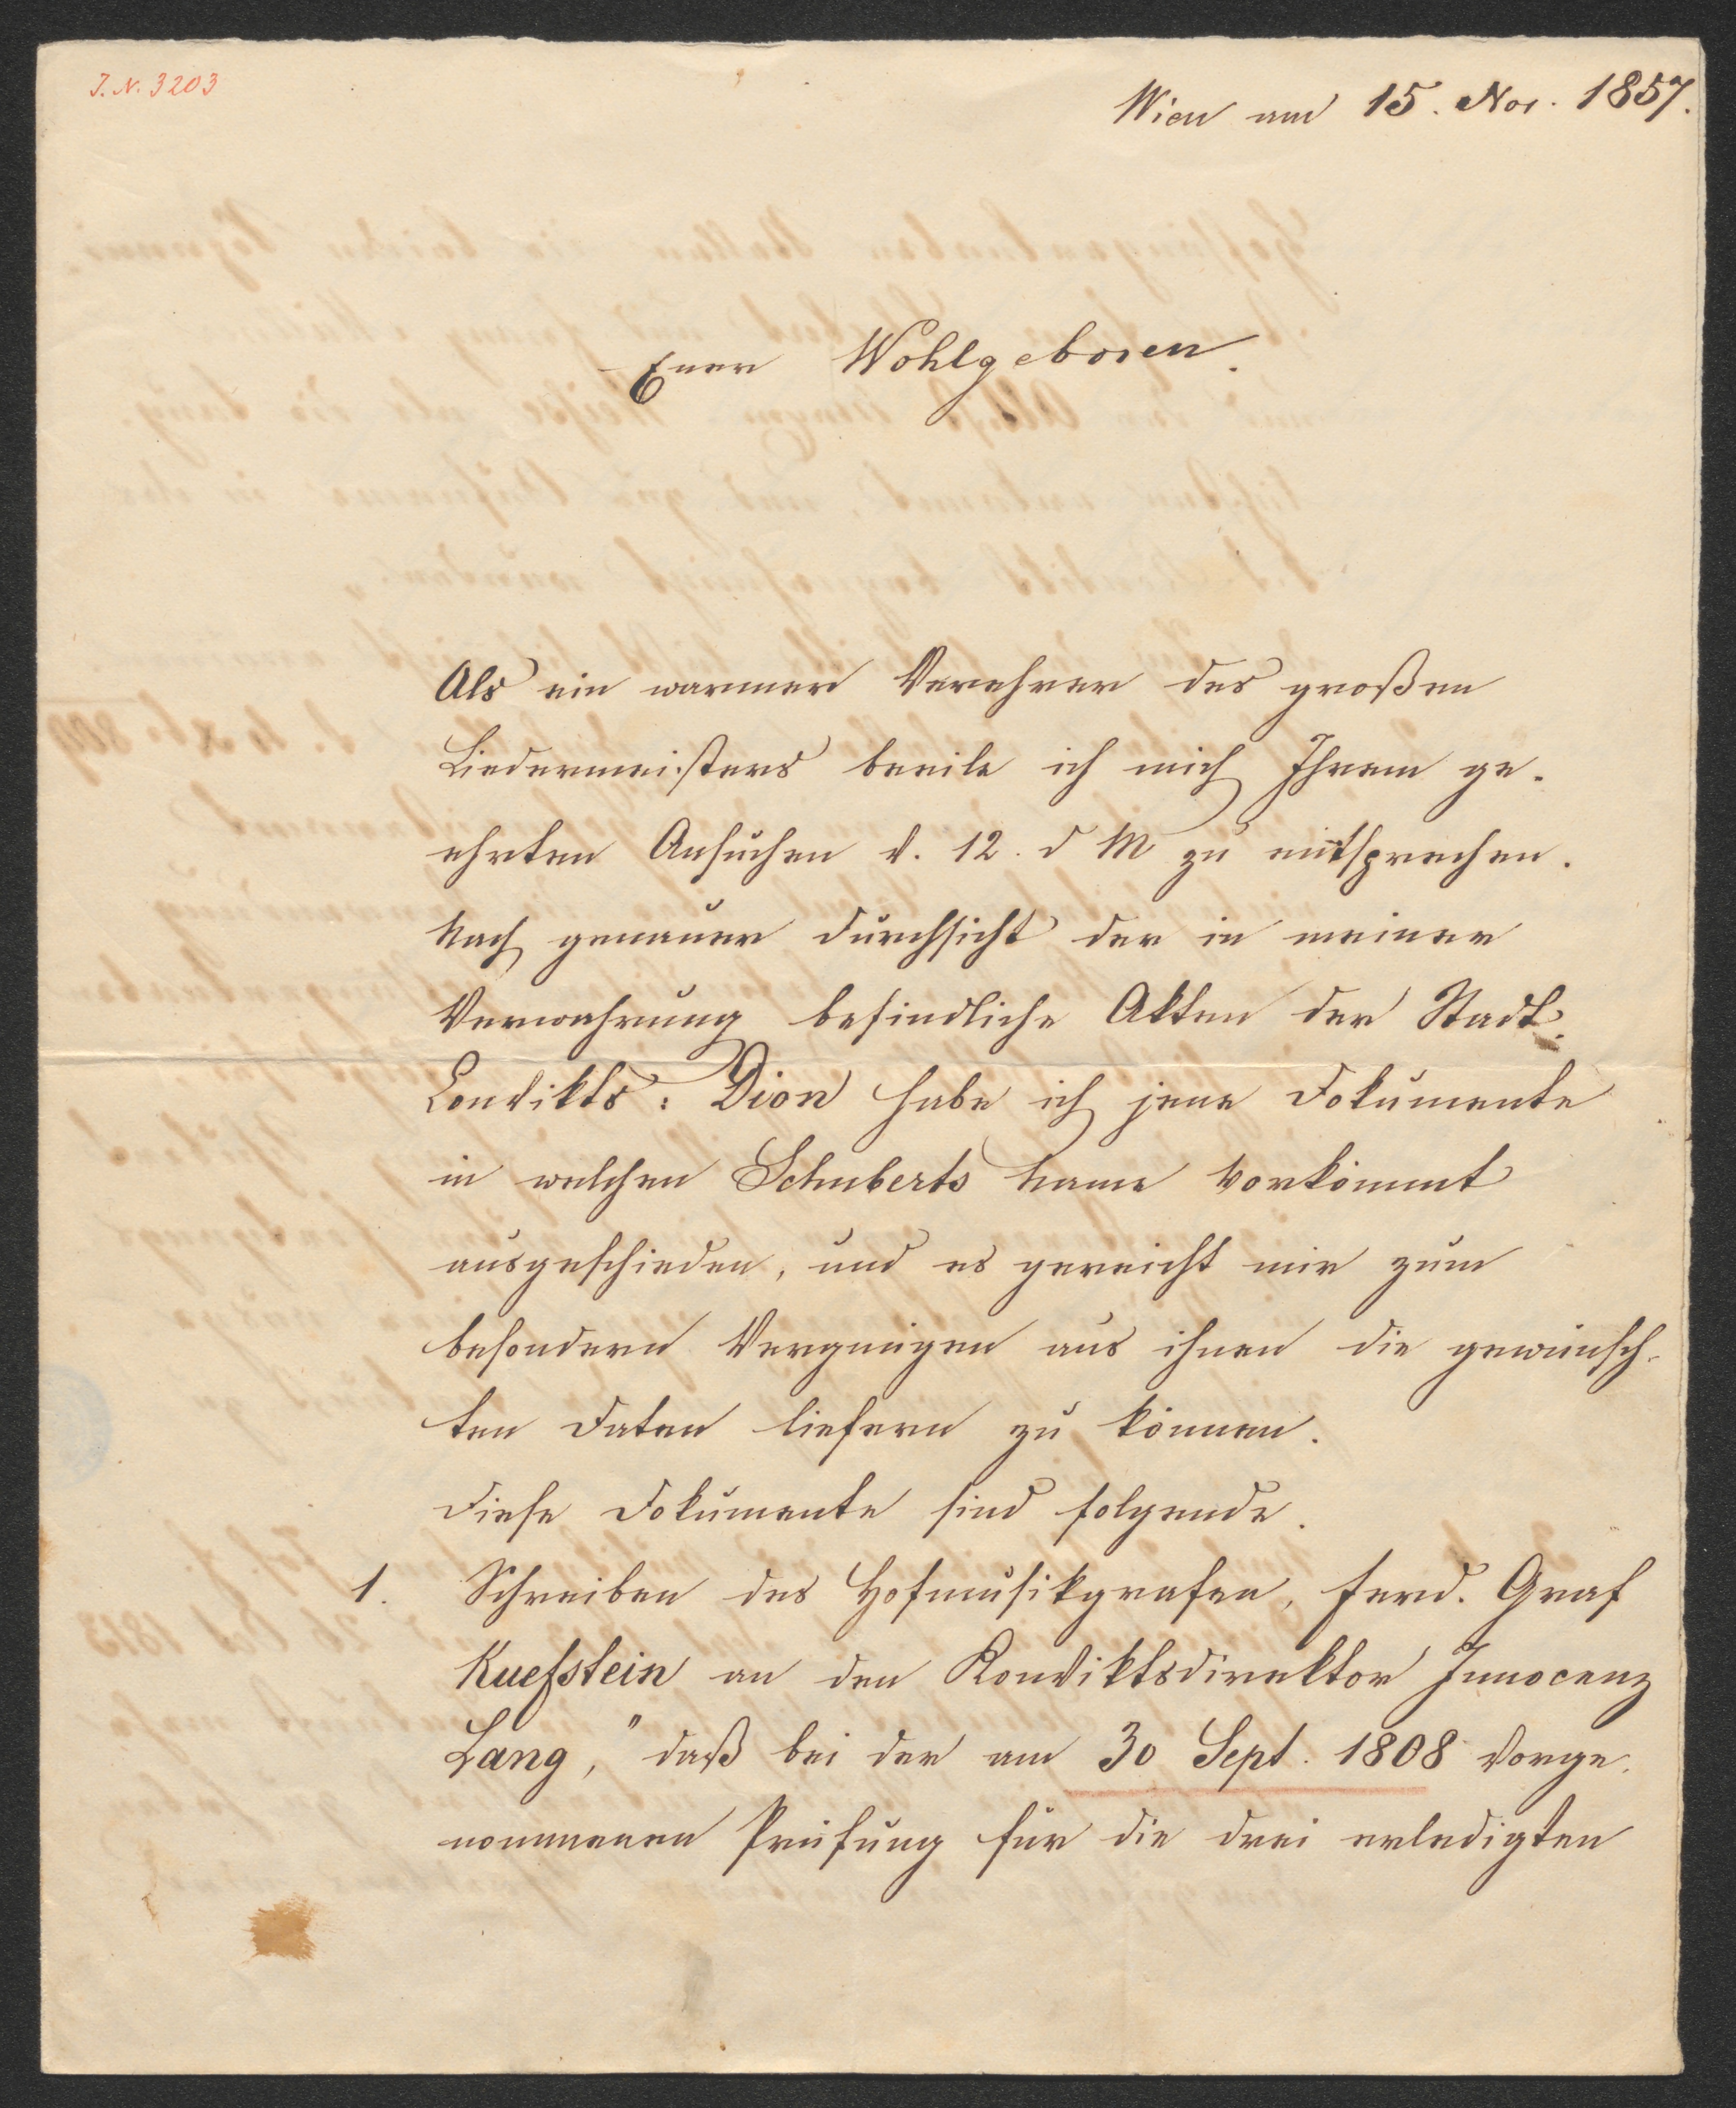 I. N. 3203
Wien am 15. Nov. 1857.
Euer Wohlgeboren.
Als ein warmer Verehrer des großen
Liedermeisters beeile ich mich Ihrem ge-
ehrten Ansuchen v. 12. d M zu entsprechen.
Nach genauer Durchsicht der in meiner
Verwahrung befindliche Akten der Stadt-
Convikts: Dion habe ich jene Dokumente
in welchen Schuberts Name vorkömmt
ausgeschieden, und es gereicht mir zum
besondern Vergnügen aus ihnen die gewünsch-
ten Daten liefern zu können.
Diese Dokumente sind folgende.
1. Schreiben des Hofmusikgrafen, Ferd. Graf
Kuefstein an den Konviktsdirektor Innocenz
Lang, "daß bei der am 30 Sept. 1808 vorge-
nommenen Prüfung für die drei erledigten